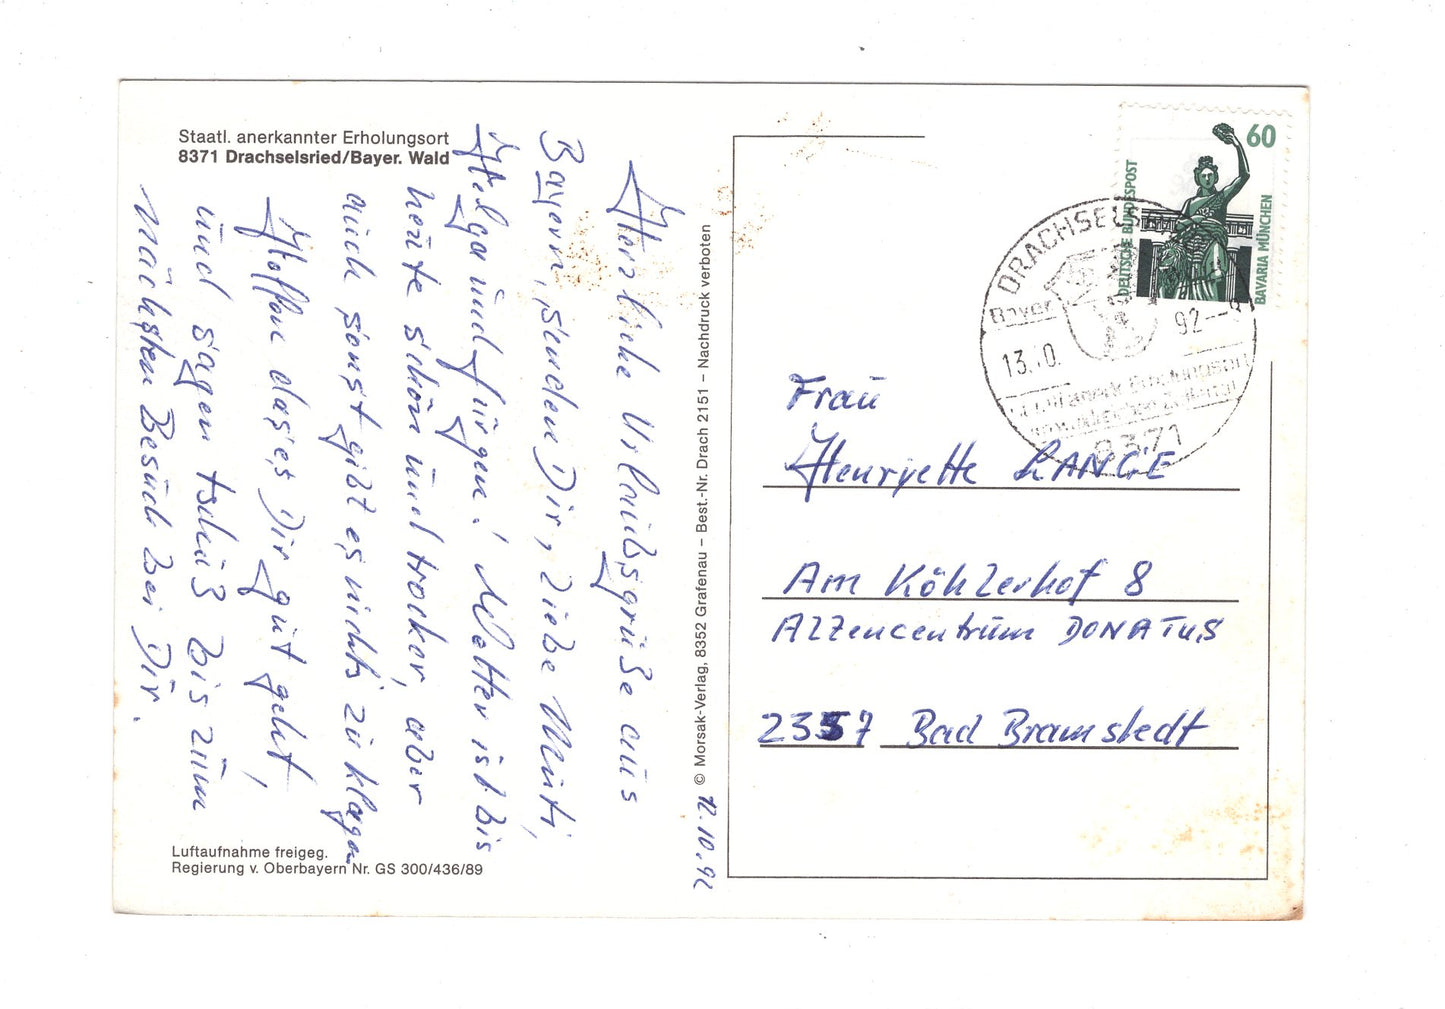 Staatl. anerkannter Erholungsort
8371 Drachselsried/Bayer. Wald
12.10.92
Herzliche Urlaubsgrüße aus
Bayern, senden Dir, liebe Mutti,
Helga und Jürgen! Wetter ist bis
heute schön und trocken, aber
auch sonst gibt es nichts zu klagen
Hoffen das es Dir gut geht,
und sagen tschüß bis zum
nächsten Besuch bei Dir.
Luftaufnahme freigeg.
Regierung v. Oberbayern Nr. GS 300/436/89
© Morsak-Verlag, 8352 Grafenau – Best.-Nr. Drach 2151 – Nachdruck verboten
60
DEUTSCHE BUNDESPOST
BAVARIA MÜNCHEN
Bayer
92
8371
Frau
Henryette LANGE
Am Köhlerhof 8
Altencentrum DONATUS
2357 Bad Bramstedt